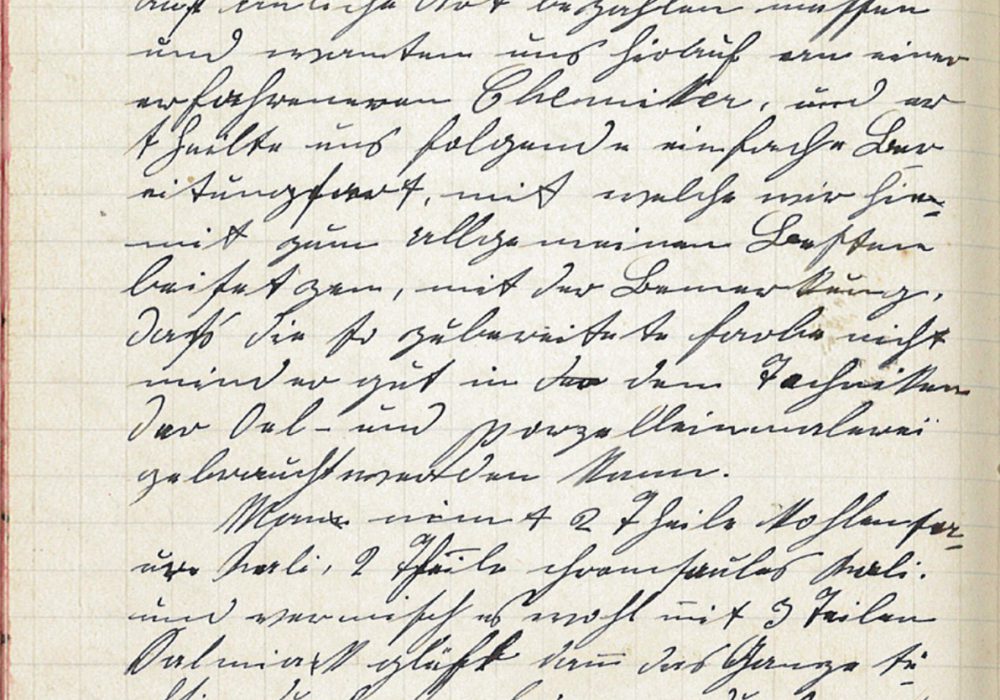 bezahlen müssen
und wanten uns hierauf an einen
erfahreneren Chemiker, und er
theilte uns folgende einfache Ber
eitungsart, mit welche wir hie-
mit zum allgemeinen Besten
beisetzen, mit der Bemerkung,
daß die so zubereitete farbe nicht
minder gut in dem Techniken
der Oel- und porzelleinmalerei
gebraucht werden kann.
Man nimt 2 Theile Kohlensa-
ure Kali, 2 Theile chromsaules Kali.
und vermisch es wohl mit 3 Teilen
Salmiak glüht dann das Ganze tü